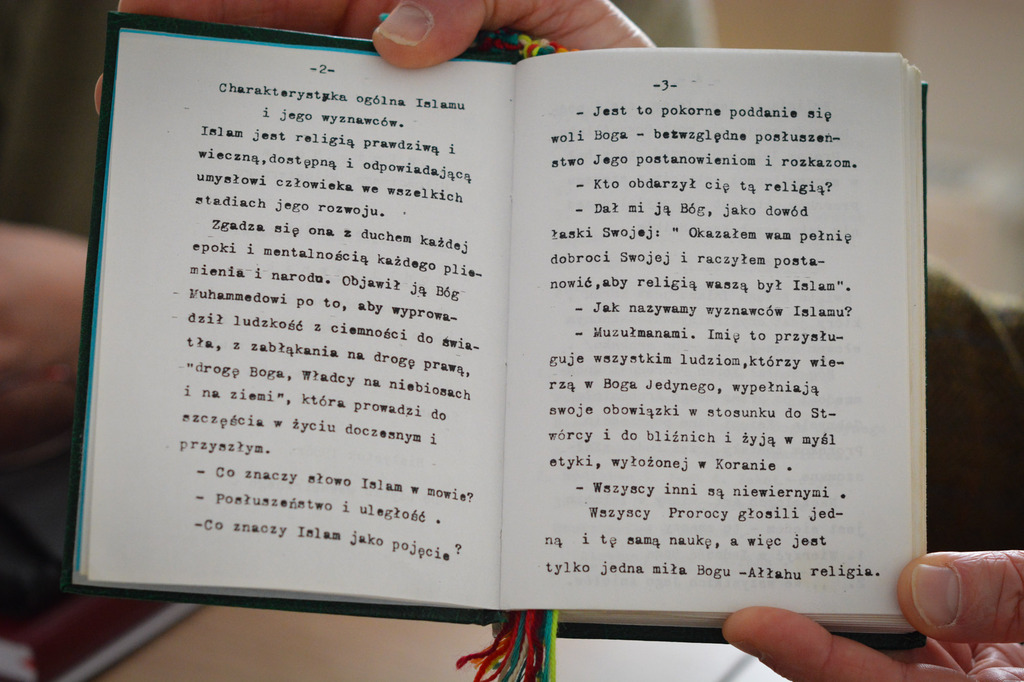 -2-
Charakterystyka ogólna Islamu
i jego wyznawców.
Islam jest religią prawdziwą i
wieczną,dostępną i odpowiadającą
umysłowi człowieka we wszelkich
stadiach jego rozwoju.
Zgadza się ona z duchem każdej
epoki i mentalnością każdego plie-
mienia i narodu. Objawił ją Bóg
Muhammedowi po to, aby wyprowa-
dził ludzkość z ciemności do świa-
tła, z zabłąkania na drogę prawą,
"drogę Boga, Władcy na niebiosach
i na ziemi", która prowadzi do
szczęścia w życiu doczesnym i
przyszłym.
- Co znaczy słowo Islam w mowie?
- Posłuszeństwo i uległość .
-Co znaczy Islam jako pojęcie?
-3-
- Jest to pokorne poddanie się
woli Boga - bezwzględne posłuszeń-
stwo Jego postanowieniom i rozkazom.
- Kto obdarzył cię tą religią?
- Dał mi ją Bóg, jako dowód
łaski Swojej: " Okazałem wam pełnię
dobroci Swojej i raczyłem posta-
nowić,aby religią waszą był Islam".
- Jak nazywamy wyznawców Islamu?
- Muzułmanami. Imię to przysłu-
guje wszystkim ludziom,którzy wie-
rzą w Boga Jedynego, wypełniają
swoje obowiązki w stosunku do St-
wórcy i do bliźnich i żyją w myśl
etyki, wyłożonej w Koranie .
- Wszyscy inni są niewiernymi .
Wszyscy Prorocy głosili jed-
ną i tę samą naukę, a więc jest
tylko jedna miła Bogu -Ałłahu religia.